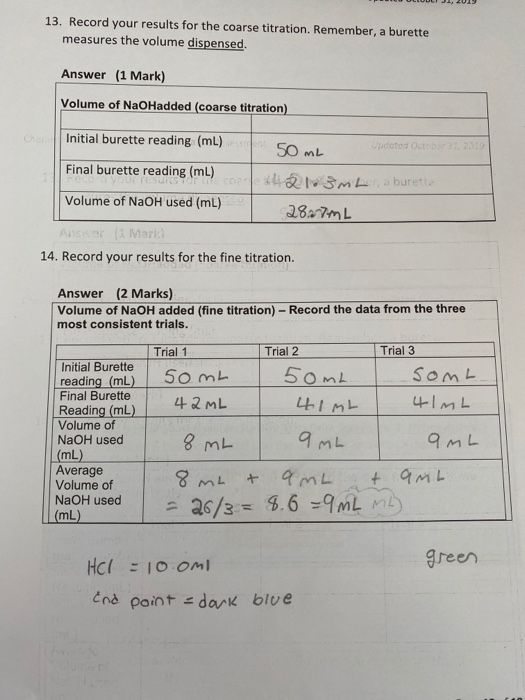 13. Record your results for the coarse titration. Remember, a burette
measures the volume dispensed.
Answer (1 Mark)
Volume of NaOHadded (coarse titration)
Initial burette reading (mL) 50 mL
Final burette reading (mL) 21.3mL
Volume of NaOH used (mL) 28.7mL
14. Record your results for the fine titration.
Answer (2 Marks)
Volume of NaOH added (fine titration) – Record the data from the three
most consistent trials.
Trial 1 Trial 2 Trial 3
Initial Burette
reading (mL) 50 mL 50 mL 50mL
Final Burette
Reading (mL) 42 mL 41 mL 41mL
Volume of
NaOH used
(mL) 8 mL 9 mL 9 mL
Average
Volume of
NaOH used
(mL)
8 mL + 9 mL + 9mL
= 26/3 = 8.6 = 9mL
HCl = 10.0ml green
End point = dark blue